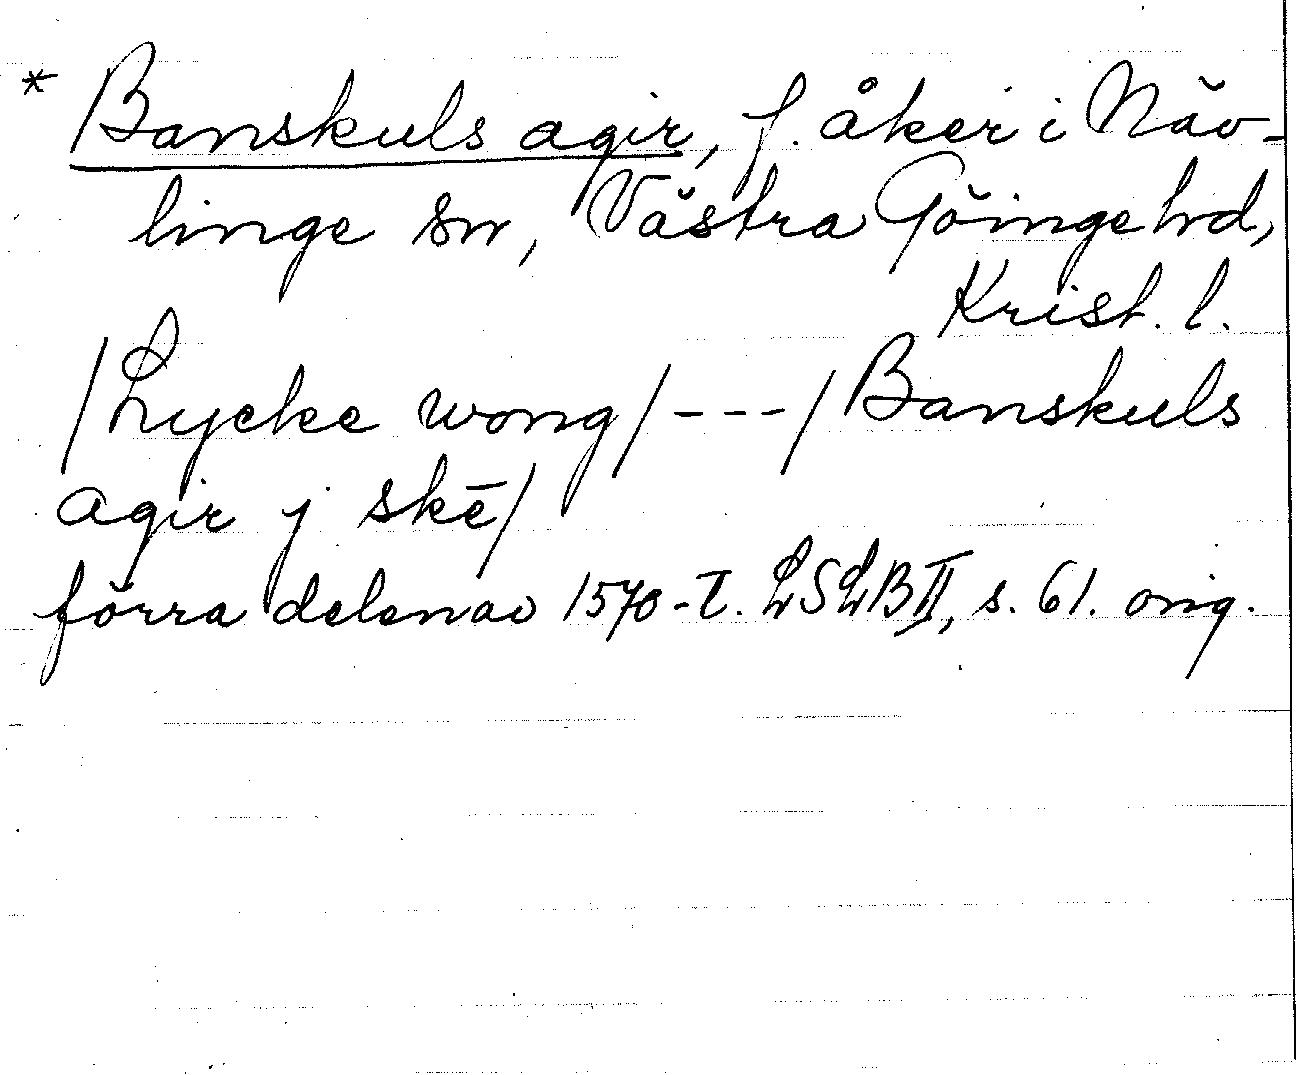 * Banskuls agir, f. åker i Näv-
linge sn, Västra Göinge hd,
Krist. l.
/Lycke wong/---/Banskuls
agir j skē/
förra delen av 1570-t. LSLB II, s. 61. orig.